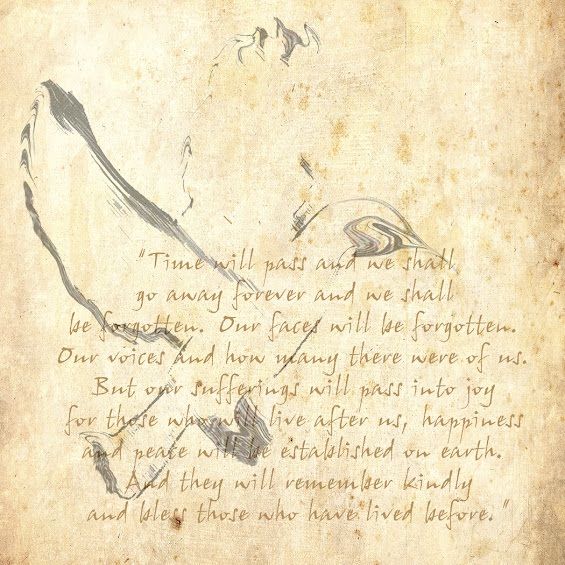 "Time will pass and we shall
go away forever and we shall
be forgotten. Our faces will be forgotten.
Our voices and how many there were of us.
But our sufferings will pass into joy
for those who will live after us, happiness
and peace will be established on earth.
And they will remember kindly
and bless those who have lived before."